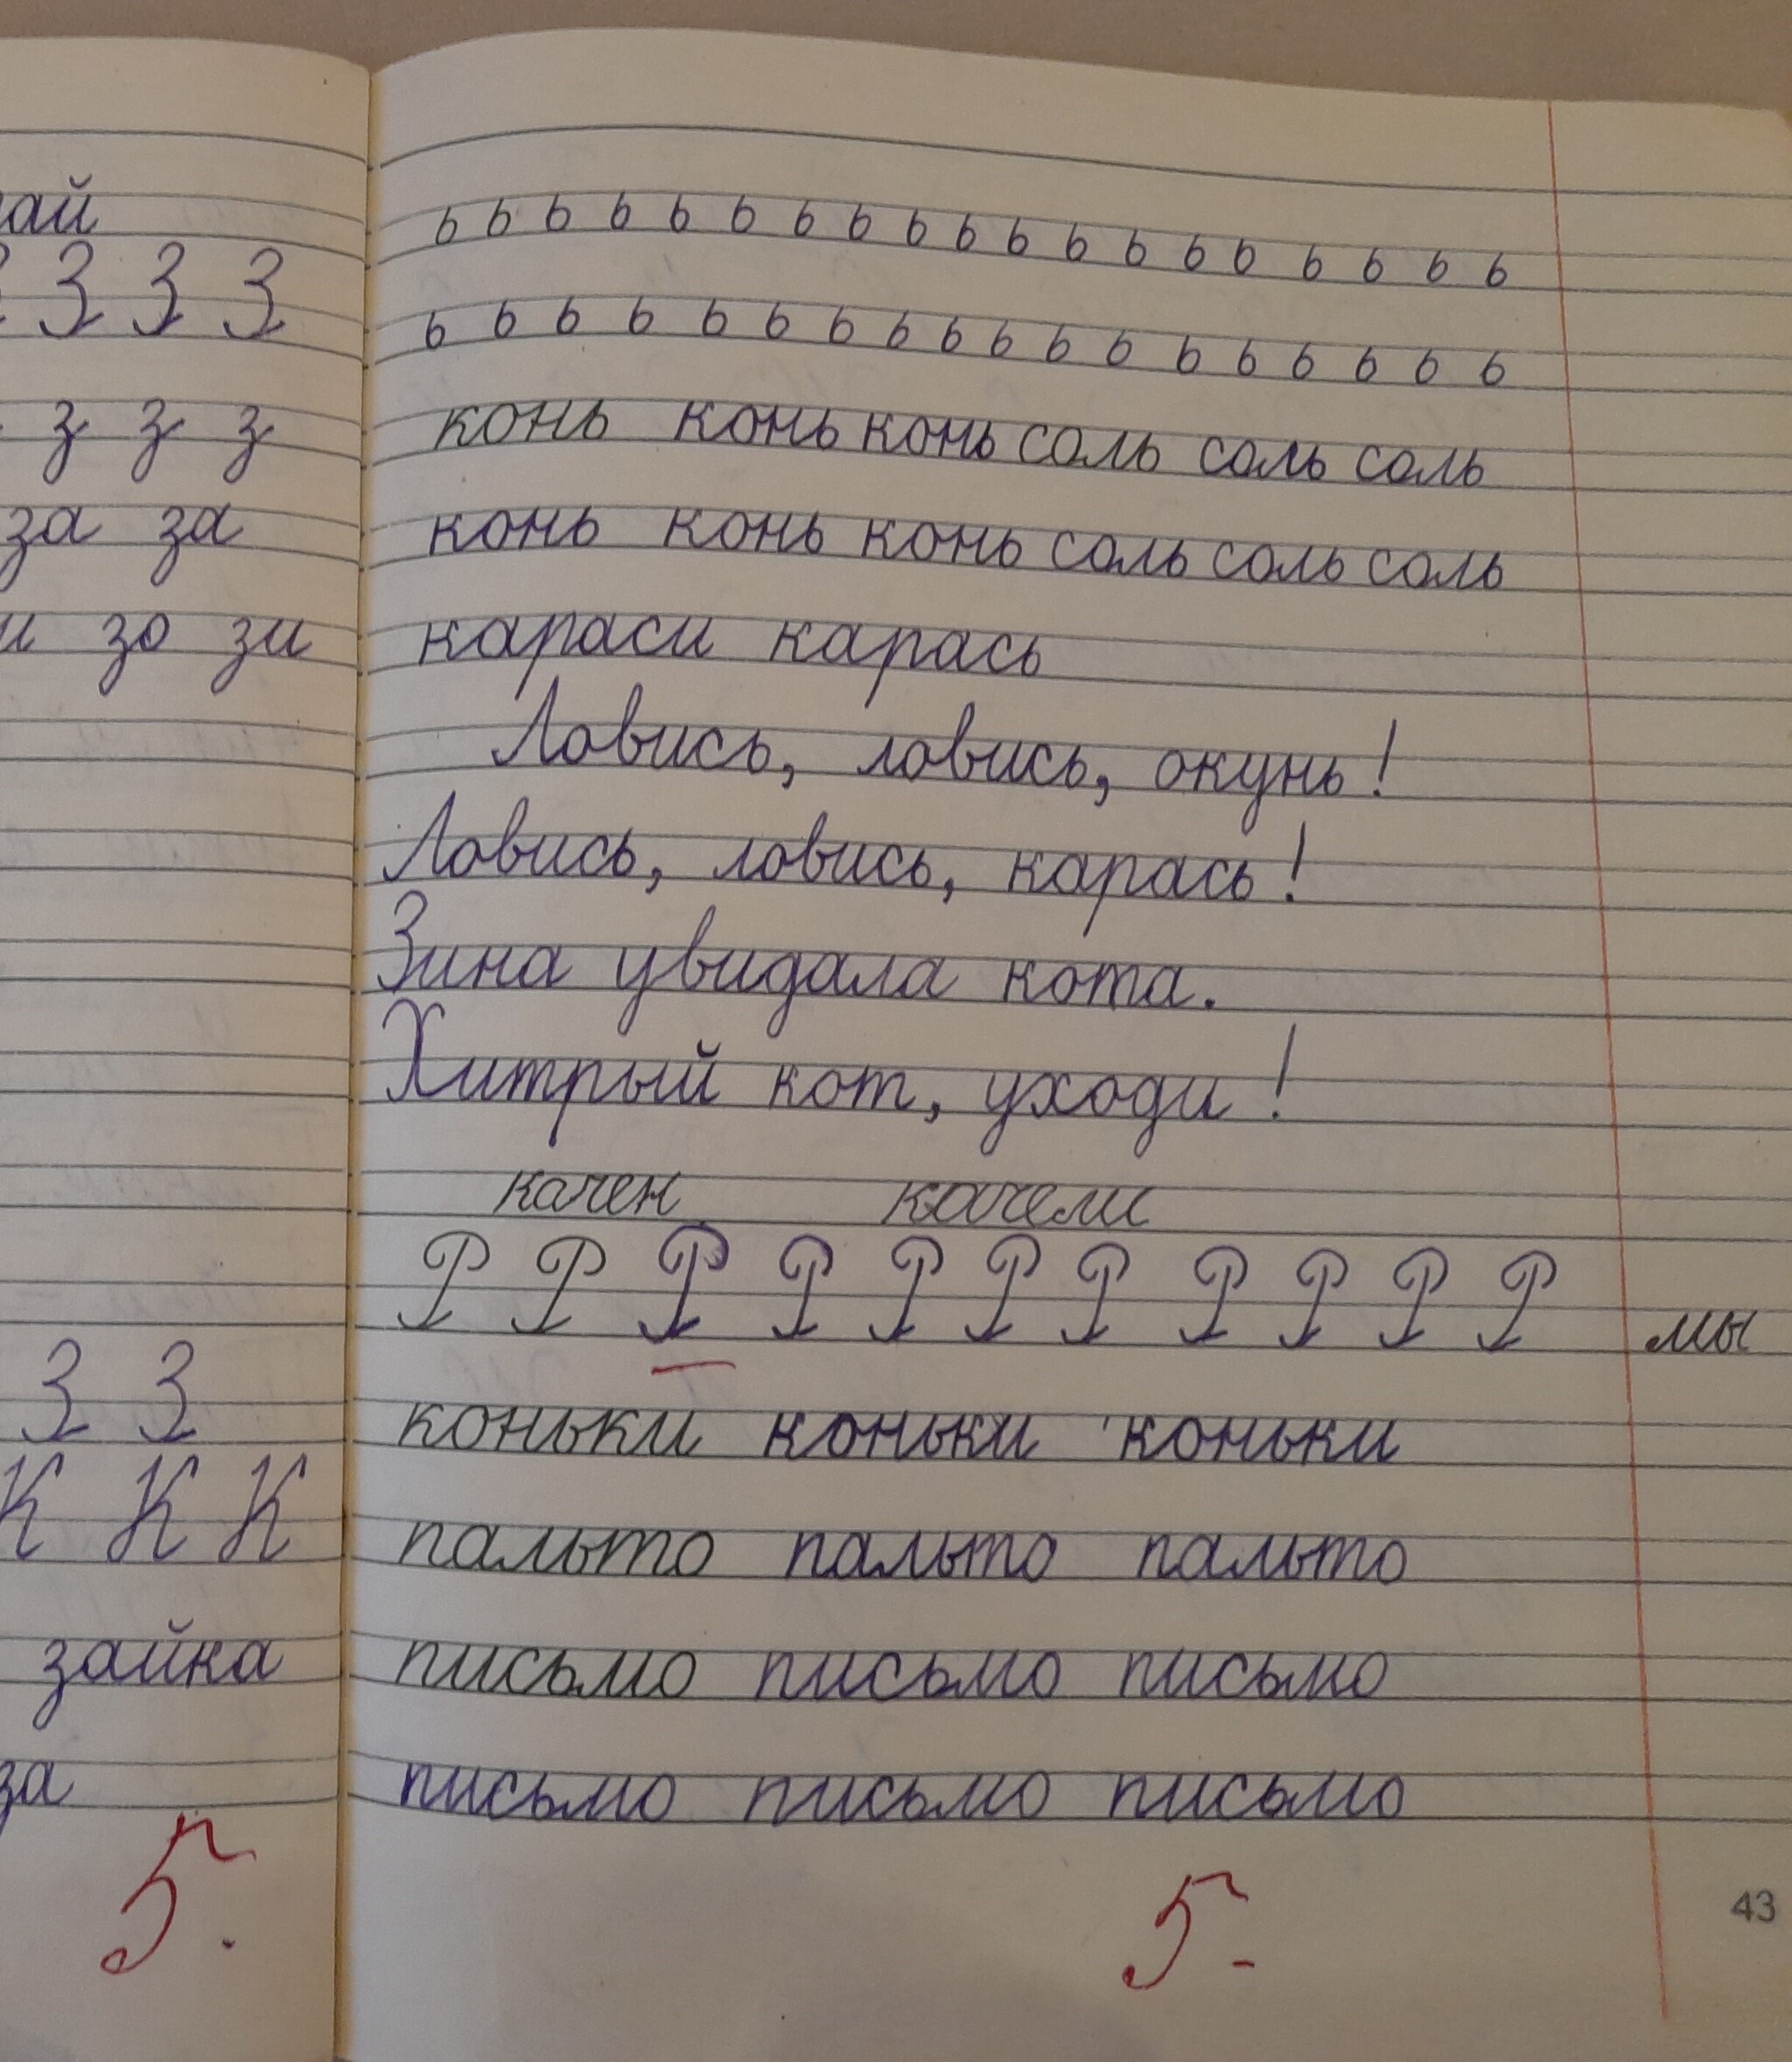 ай
З З З
з з з
за за
и зо зи
З З
К К К
зайка
за
5.
ь ь ь ь ь ь ь ь ь ь ь ь ь ь ь ь ь ь ь
ь ь ь ь ь ь ь ь ь ь ь ь ь ь ь ь ь ь
конь конь конь соль соль соль
конь конь конь соль соль соль
караси карась
Ловись, ловись, окунь!
Ловись, ловись, карась!
Зина увидала кота.
Хитрый кот, уходи!
качен качели
Р Р Р Р Р Р Р Р Р Р Р мы
коньки коньки коньки
пальто пальто пальто
письмо письмо письмо
письмо письмо письмо
5-
43